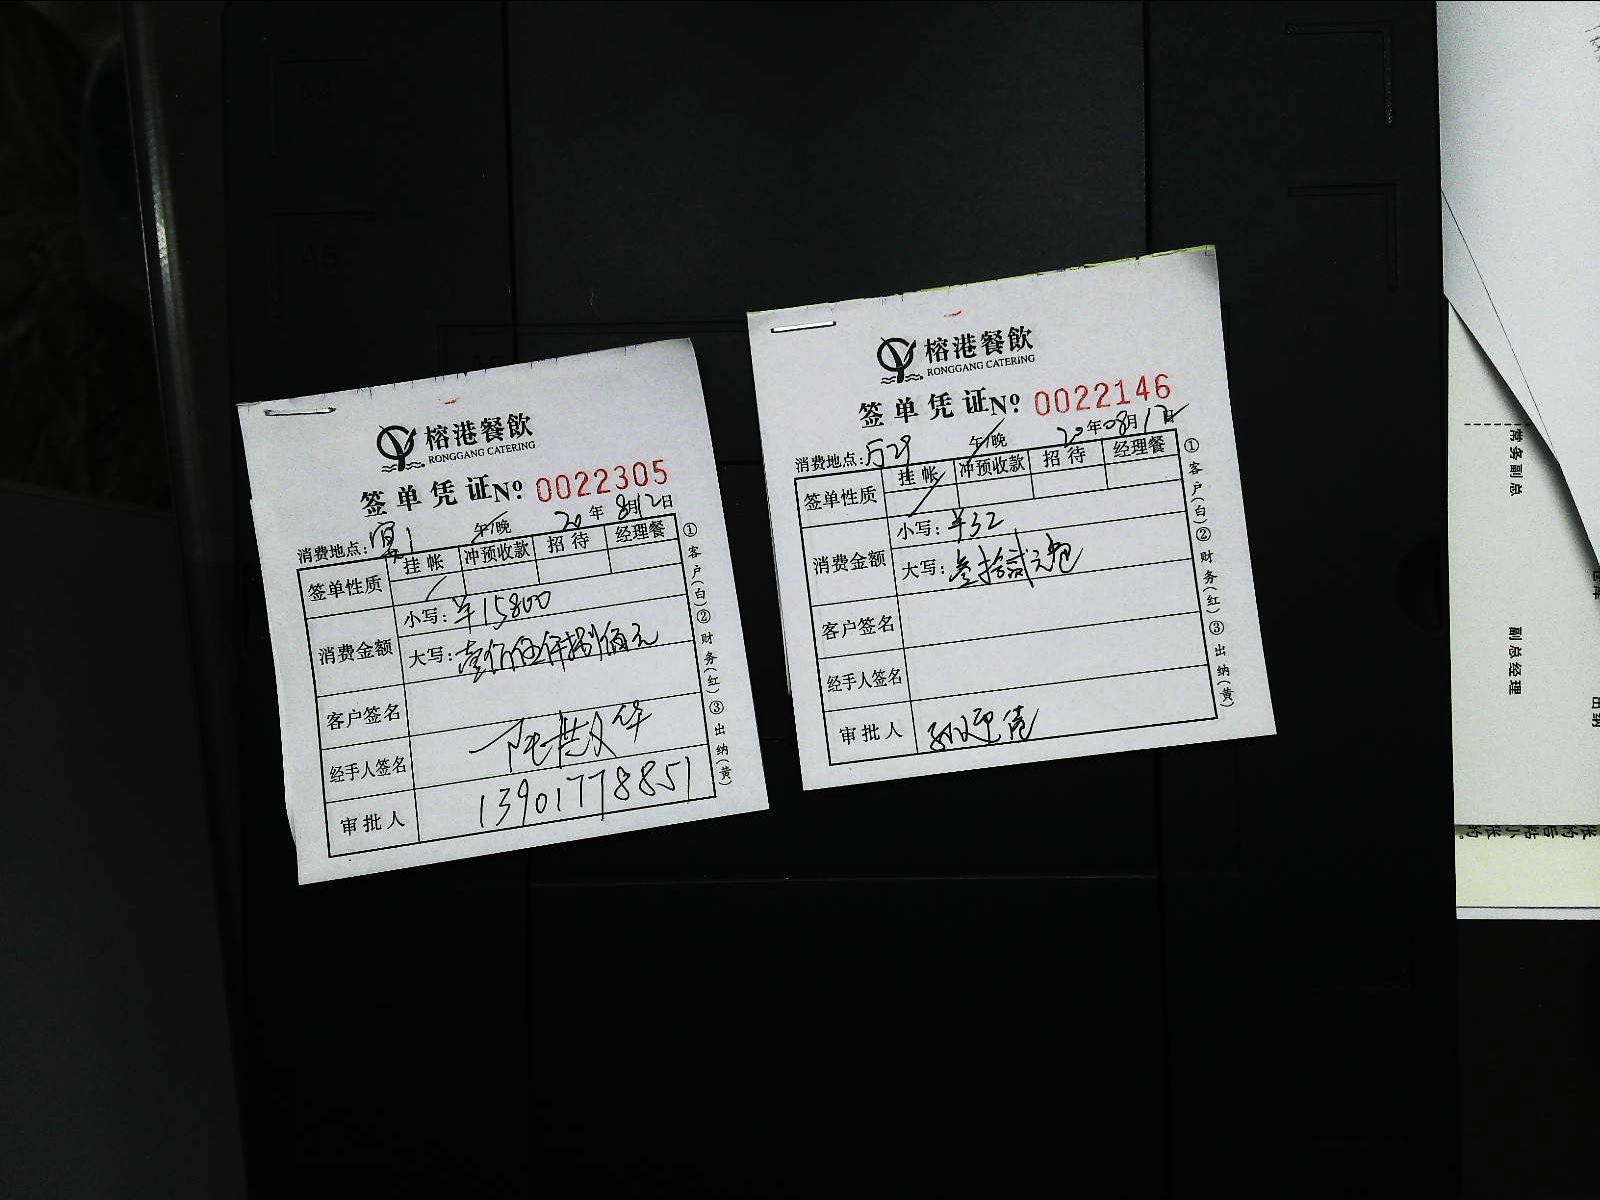 榕港餐飲
RONGGANG CATERING
签单凭证№ 0022305
消费地点: 午/晚 20年8月12日
签单性质 挂帐 冲预收款 招待 经理餐
消费金额 小写:¥15800
大写:壹佰伍仟捌佰元
客户签名
经手人签名
审批人 13901778851
①客户(白)②财务(红)③出纳(黄)
榕港餐飲
RONGGANG CATERING
签单凭证№ 0022146
消费地点: 529 午/晚 20年08月12日
签单性质 挂帐 冲预收款 招待 经理餐
消费金额 小写:¥32
大写:叁拾贰元
客户签名
经手人签名
审批人
①客户(白)②财务(红)③出纳(黄)
常务副总
副总经理
A4
A5